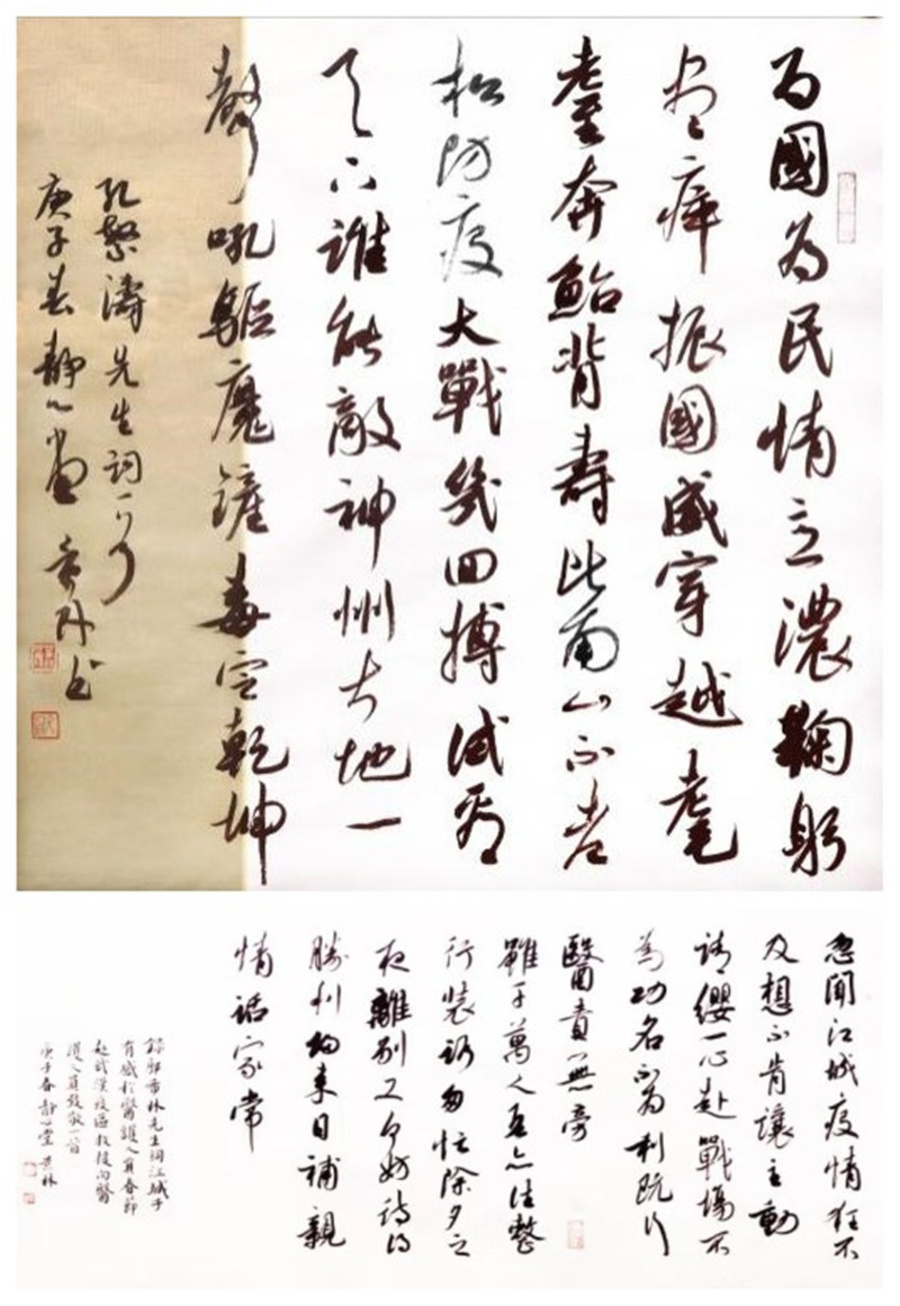 为國為民情意濃鞠躬
盡瘁振國威穿越耄
耋奔鮐背壽比南山不老
松防疫大戰幾回搏滅
天下誰能敵神州大地一
聲吼驅魔鏟毒定乾坤
孔繁濤先生詞一首
庚子春靜心堂
忽聞江城疫情狂不
及想不肯讓主動
請纓一心赴戰場不
為功名不為利
醫責無旁
雖千萬人吾亦往整
行裝匆忙除夕之
夜離別
勝利約來日補親
情話家常
林先生詞江城子
有感於醫護人員春節
赴武漢疫區救援向醫
護人員致敬一首
庚子春靜心堂